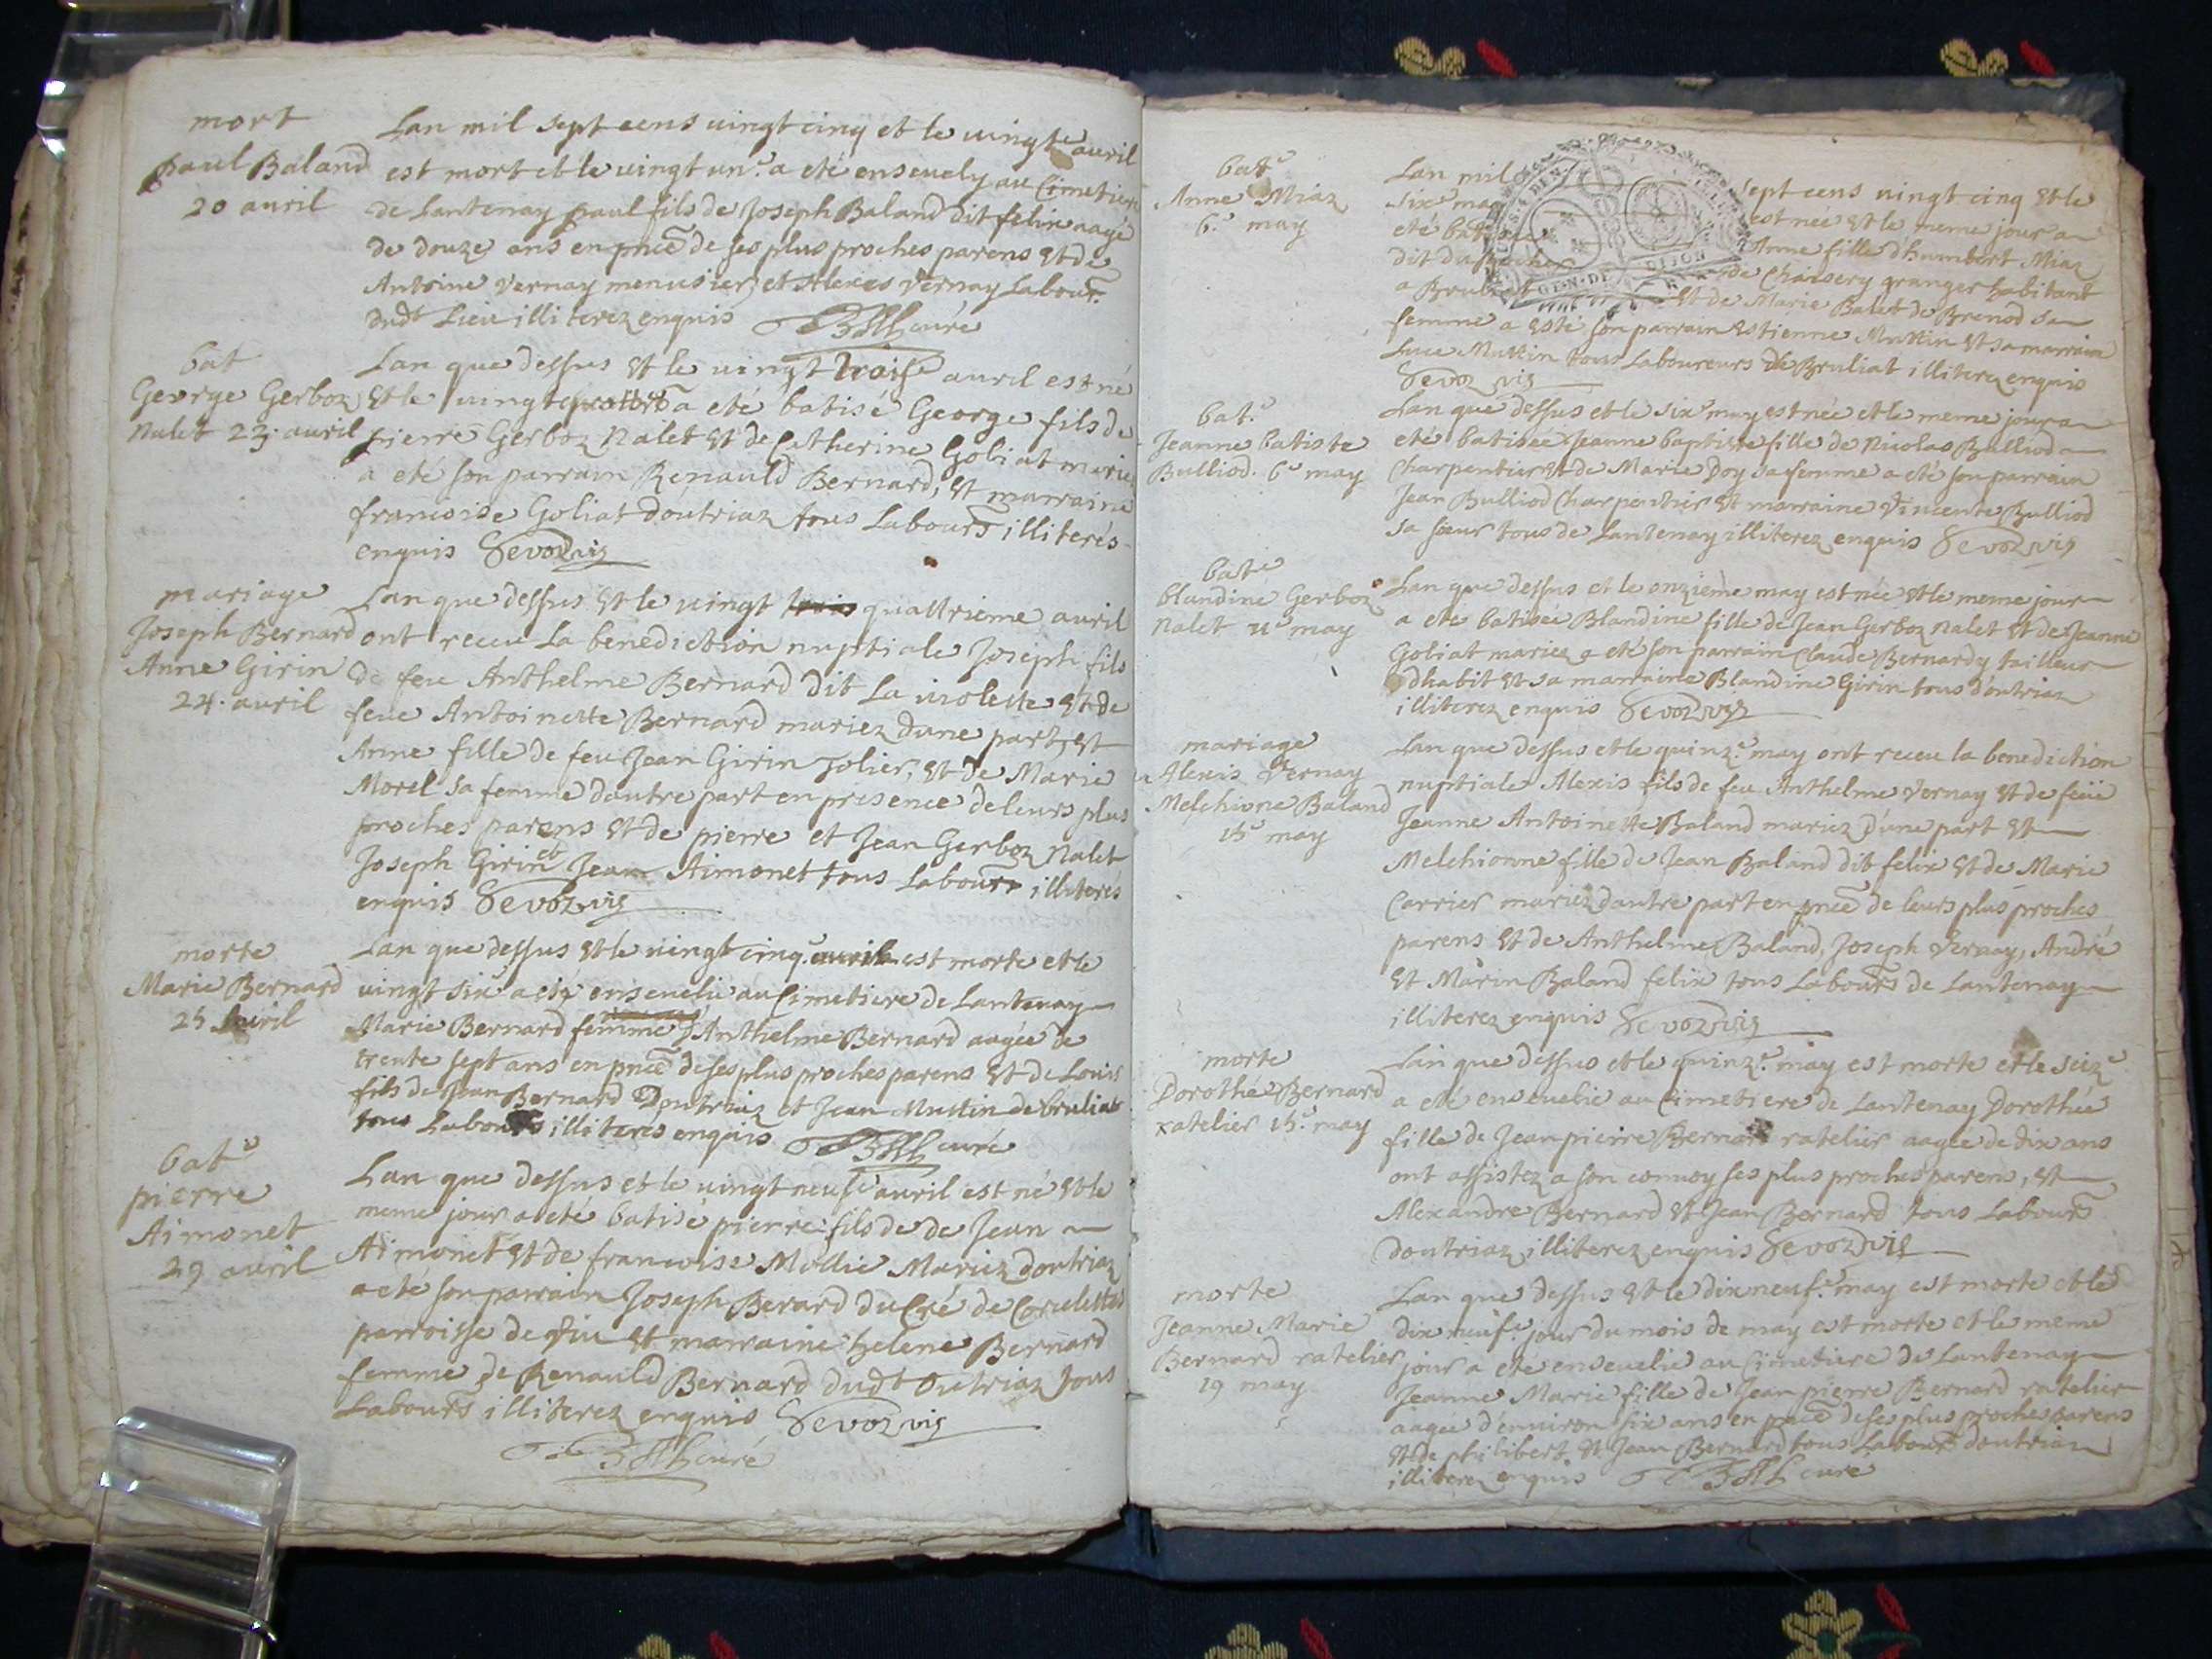 mort
paul Baland
20 avril
Lan mil sept cens vingt cinq et le vingt.e avril
est mort et le vingt un.e a eté ensevely au Cimetiere
de Lantenay paul fils de Joseph Baland dit felix aagé
de douze ans en pnce de ses plus proches parens et de
Antoine Vernay menusier, et Alexis Vernay Labour.
dudt Lieu illiterez enquis curé
bat
George Gerboz
Nalet 23. avril
Lan que dessus et le vingt trois.e avril est né
et le vingt a eté batisé George fils de
pierre Gerboz Nalet et de Catherine Goliat mariez
a eté son parrain Renauld Bernard, et marraine
francoise Goliat doutriaz tous Labours illiterés
enquis Sevoz vic
mariage
Joseph Bernard
Anne Girin
24. avril
Lan que dessus et le vingt trois quattrieme avril
ont receu La benediction nuptiale Joseph fils
de feu Anthelme Bernard dit La violette et de
feue Antoinette Bernard mariez dune part, et
Anne fille de feu Jean Girin Jolier, et de Marie
Morel sa femme dautre part en presence de leurs plus
proches parens et de pierre et Jean Gerboz Nalet
Joseph Girin et Jean Aimonet tous Labours illiterés
enquis Sevoz vic
morte
Marie Bernard
25 avril
Lan que dessus et le vingt cinq.e avril est morte et le
vingt six a eté ensevelie au Cimetiere de Lantenay
Marie Bernard femme d'Anthelme Bernard aagée de
trente sept ans en pnce de ses plus proches parens et de Louis
fils de Jean Bernard Doutriaz et Jean Muttin de bruliat
tous Labours illiteres enquis curé
bat.e
pierre
Aimonet
29 avril
Lan que dessus et le vingt neuf.e avril est né et le
meme jour a eté batisé pierre fils de de Jean
Aimonet et de francoise Mollie Mariez doutriaz
a eté son parrain Joseph Berard du Cré de
parroisse de et marraine helene Bernard
femme de Renauld Bernard dudt Outriaz tous
Labours illiterez enquis Sevoz vic
curé
bat.e
Anne Miaz
6.e may
Lan mil sept cens vingt cinq et le
six ma est née et le meme jour a
eté bat Anne fille dhumbert Miaz
dit du de Chaisery granger habitant
a Brul et de Marie Balet de Brenod sa
femme a esté son parrain Estienne Muttin et sa marraine
Luce Muttin tous Laboureurs de Bruliat illiterez enquis
Sevoz vic
bat.e
Jeanne batiste
Bulliod. 6.e may
Lan que dessus et le six may est née et le meme jour a
eté batisée Jeanne baptiste fille de Nicolas Bulliod
Charpentier et de Marie Doy sa femme a eté son parrain
Jean Bulliod Charpentier et marraine Vincente Bulliod
sa soeur tous de Lantenay illiterez enquis Sevoz vic
bat.e
blandine Gerboz
Nalet 11.e may
Lan que dessus et le onzieme may est née et le meme jour
a eté batisée Blandine fille de Jean Gerboz Nalet et de Jeanne
Goliat mariez a eté son parrain Claude Bernardy tailleur
dhabit et sa marraine Blandine Girin tous doutriaz
illiterez enquis Sevoz vic
mariage
Alexis Vernay
Melchione Baland
15.e may
Lan que dessus et le quinz.e may ont receu la benediction
nuptiale Alexis fils de feu Anthelme Vernay et de feüe
Jeanne Antoinette Baland mariez d'une part et
Melchionne fille de Jean Baland dit felix et de Marie
Carrier mariez dautre part en pnce de leurs plus proches
parens et de Anthelme Baland, Joseph Vernay, André
et Marin Baland felix tous Labours de Lantenay
illiterez enquis Sevoz vic
morte
Dorothé Bernard
ratelier 15.e may
Lan que dessus et le quinz.e may est morte et le seiz.e
a eté ensevelie au Cimetiere de Lantenay Dorothée
fille de Jean pierre Bernard ratelier aagée de dix ans
ont assistez a son convoy ses plus proches parens, et
Alexandre Bernard et Jean Bernard tous Labours
doutriaz illiterez enquis Sevoz vic
morte
Jeanne Marie
Bernard ratelier
19 may
Lan que dessus et le dixneuf.e may est morte et le
dix neuf.e jour du mois de may est morte et le meme
jour a eté ensevelie au Cimetiere de Lantenay
Jeanne Marie fille de Jean pierre Bernard ratelier
aagée d'environ six ans en pnce de ses plus proches parens
et de philibert et Jean Bernard tous Labours doutriaz
illiterez enquis curé
GEN. DE DIJON